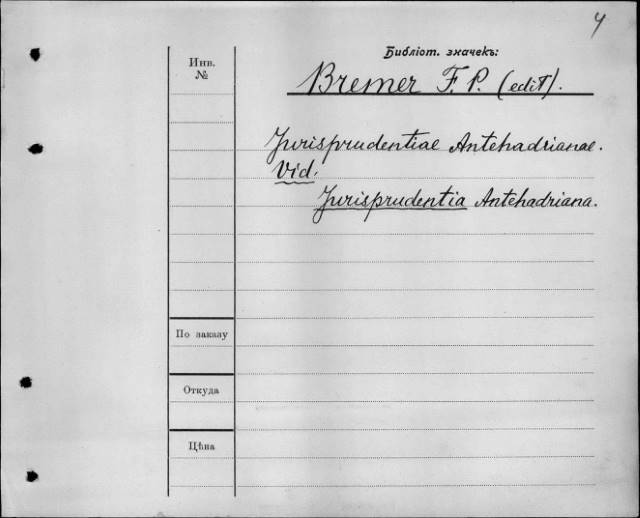 4
Библіот. значекъ:
Инв.
№
Bremer F. P. (edit).
Jurisprudentiae Antehadrianae.
Vid.
Jurisprudentia Antehadriana.
По заказу
Откуда
Цѣна